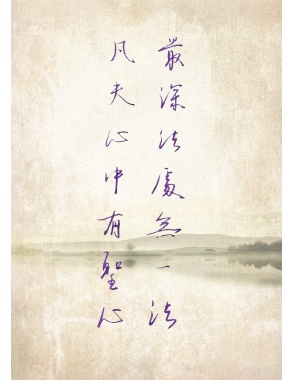 最深法處無一法
凡夫心中有聖心